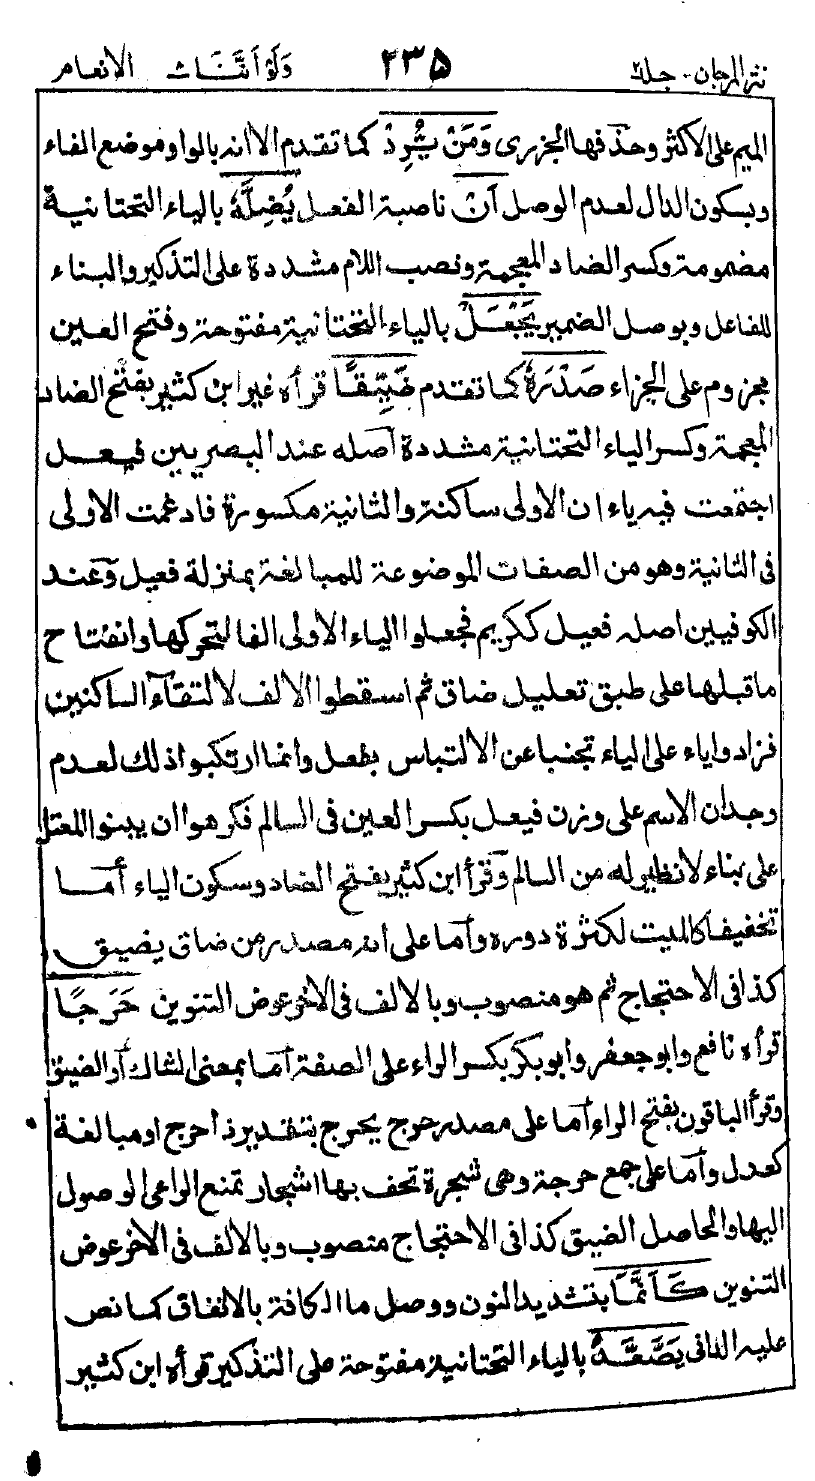 نثر المرجان - جلد٢ ٢٣٥ وَلَوْ اَنَّنَا ث الانعام
الميم على الاكثر وحذفها الجزرى وَمَنْ يُّرِدْ كما تقدم الا انه بالواو موضع الفاء
وبسكون الدال لعدم الوصل اَنْ ناصبة الفعل يُضِلَّهٗ بالياء التحتانية
مضمومة وكسر الضاد المعجمة ونصب اللام مشددة على التذكير والبناء
للفاعل وبوصل الضمير يَجْعَلْ بالياء التحتانية مفتوحة وفتح العين
مجزوم على الجزاء صَدْرَهٗ كما تقدم ضَيِّقًا قرأه غير ابن كثير بفتح الضاد
المعجمة وكسر الياء التحتانية مشددة اصله عند البصريين فيعل
اجتمعت فيه ياء ان الاولى ساكنة والثانية مكسورة فادغمت الاولى
فى الثانية وهو من الصفات الموضوعة للمبالغة بمنزلة فعيل وعند
الكوفيين اصله فعيل ككريم فجعلوا الياء الاولى الفا لتحركها وانفتاح
ما قبلها على طبق تعليل ضاق ثم اسقطوا الالف لالتقآء الساكنين
فزادوا ياء على الياء تجنبا عن الالتباس بفعل وانما ارتكبوا ذلك لعدم
وجدان الاسم على وزن فيعل بكسر العين فى السالم فكرهوا ان يبنوا المعتل
على بناء لا نظير له من السالم وقرأ ابن كثير بفتح الضاد وسكون الياء أما
تخفيفا كالميت لكثرة دوره وأما على انه مصدر من ضاق يضيق
كذا فى الاحتجاج ثم هو منصوب وبالالف فى الاخر عوض التنوين حَرَجًا
قرأه نافع وابو جعفر وأبو بكر بكسر الراء على الصفة أما بمعنى الشاك أو الضيق
وقرأ الباقون بفتح الراء أما على مصدر حرج يحرج بتقدير ذا حرج او مبالغة
كعدل وأما على جمع حرجة وهى شجرة تحف بها اشجار تمنع الراعى الوصول
اليها والحاصل الضيق كذا فى الاحتجاج منصوب وبالالف فى الاخر عوض
التنوين كَاَنَّمَا بتشديد النون ووصل ما الكافة بالاتفاق كما نص
عليه الدانى يَصَّعَّدُ بالياء التحتانية مفتوحة على التذكير قرأه ابن كثير